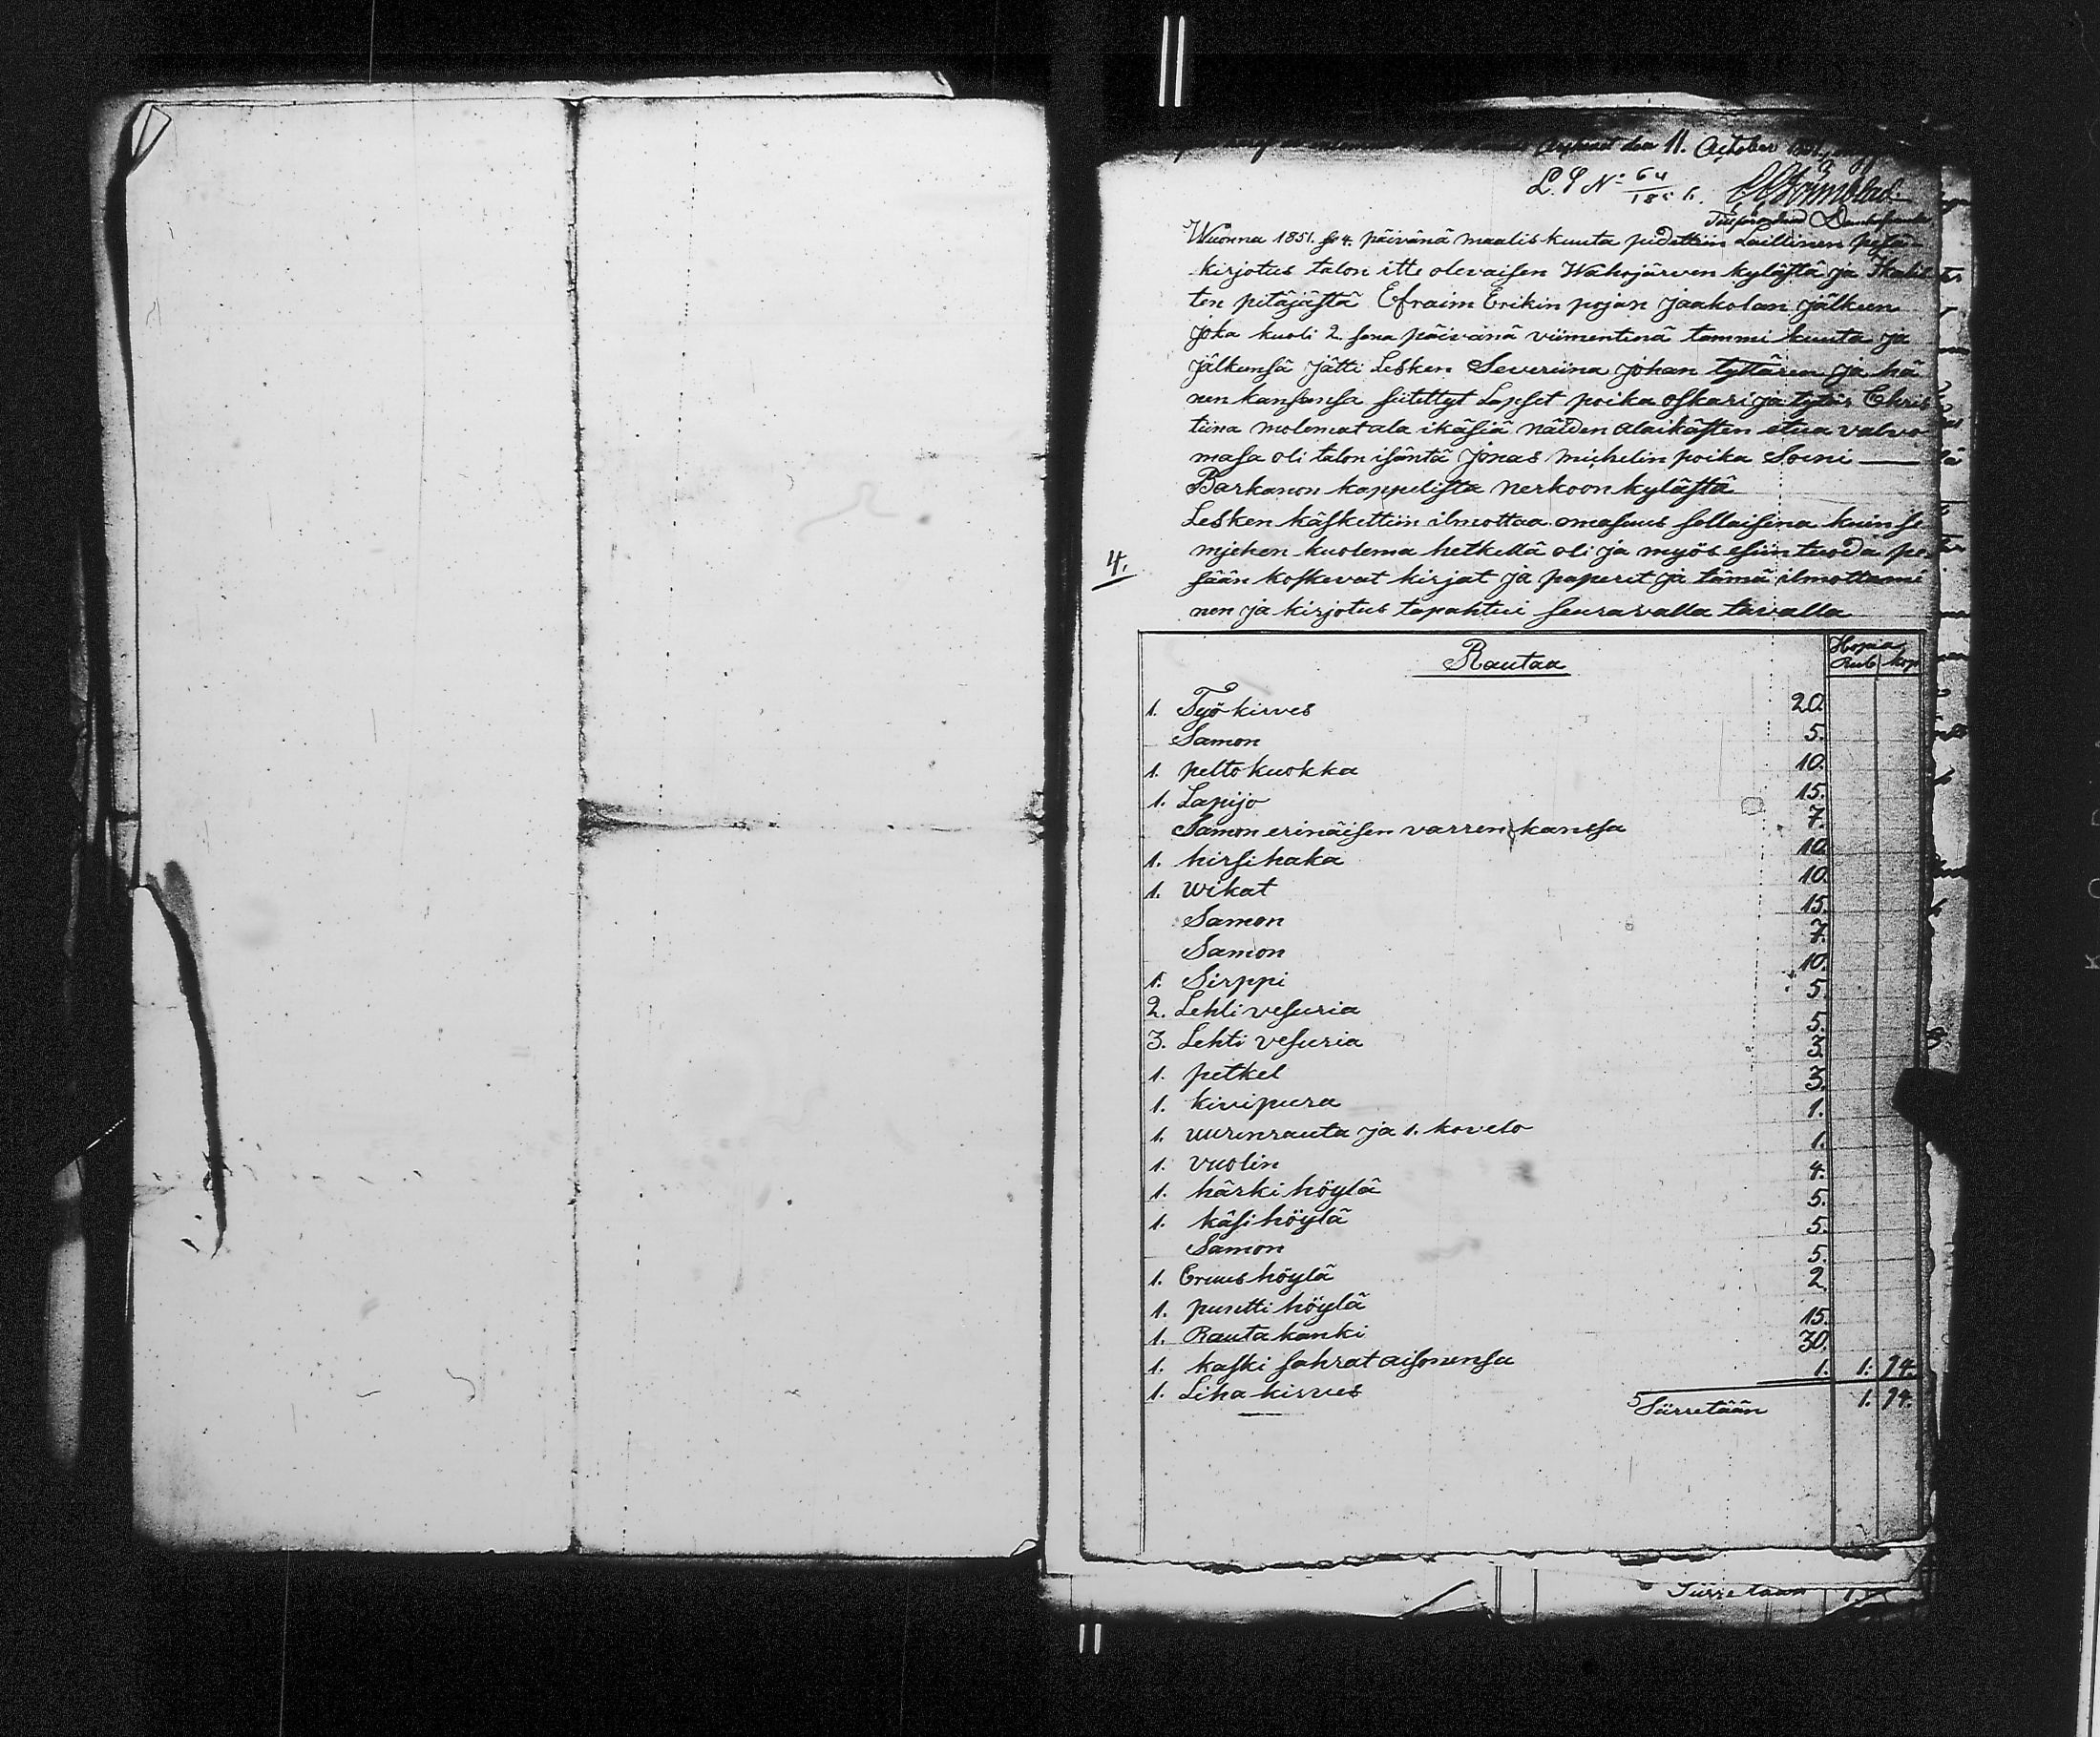 den 11. October
L. S N:
Wuonna 1851. se 4. päivänä maaliskuuta pidettiin Laillinen pesä-
kirjotus talon itte olevaisen Wahojärven kylästä ja Ikalis
ten pitäjästä Efraim Erikin pojan Jaakolan jälkeen
joka kuoli 2. sena päivänä viimentenä tammi kuuta ja
jälkensä jätti Lesken Severiina Johan tyttären ja hä
nen kansansa siitettyt Lapset poika Oskari ja tytär Chris
tiina molemat ala ikäsiä näiden alaikästen etua valvo
masa oli talon isäntä Jonas Michelin poika Soini —
Barkanon kappelista nerkoon kylästä
Lesken käskettiin ilmottaa omasuus sellaisena kuin se
miehen kuolema hetkellä oli ja myös esiin tuoda pe
sään koskevat kirjat ja paperit ja tämä ilmottami
nen ja kirjotus tapahtui seuravalla tavalla
4.
Rautaa Hopiaa
Rub kop
1. Työkirves 20.
Samon 5.
1. peltokuokka 10.
1. Lapijo 15.
Samon erinäisen varren kanssa 7.
1. hirsihaka 10.
1. wikat 10.
Samon 15.
Samon 7.
1. Sirppi 10.
2. Lehti vesuria 5.
3. Lehti vesuria 5.
1. petkel 3.
1. kivipura 3.
1. uurenrauta ja 1. kovelo 1.
1. vuolin 1.
1. härki höylä 4.
1. käsihöylä 5.
Samon 5.
1. höylä 5.
1. puntti höylä 2.
1. Rauta kanki 15.
1. kaski sahrat aisonensa 30.
1. Liha kirves 1. 1. 94.
Siirretään 1. 94.
Siirretaan